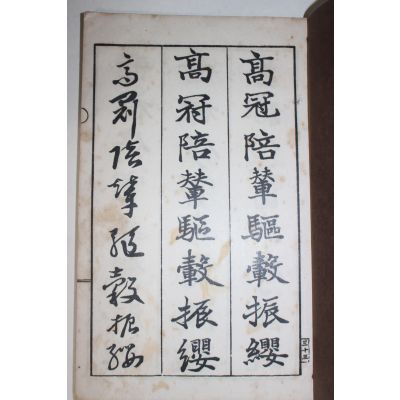 高冠陪輦驅轂振纓
高冠陪輦驅轂振纓
高冠陪輦驅轂振纓